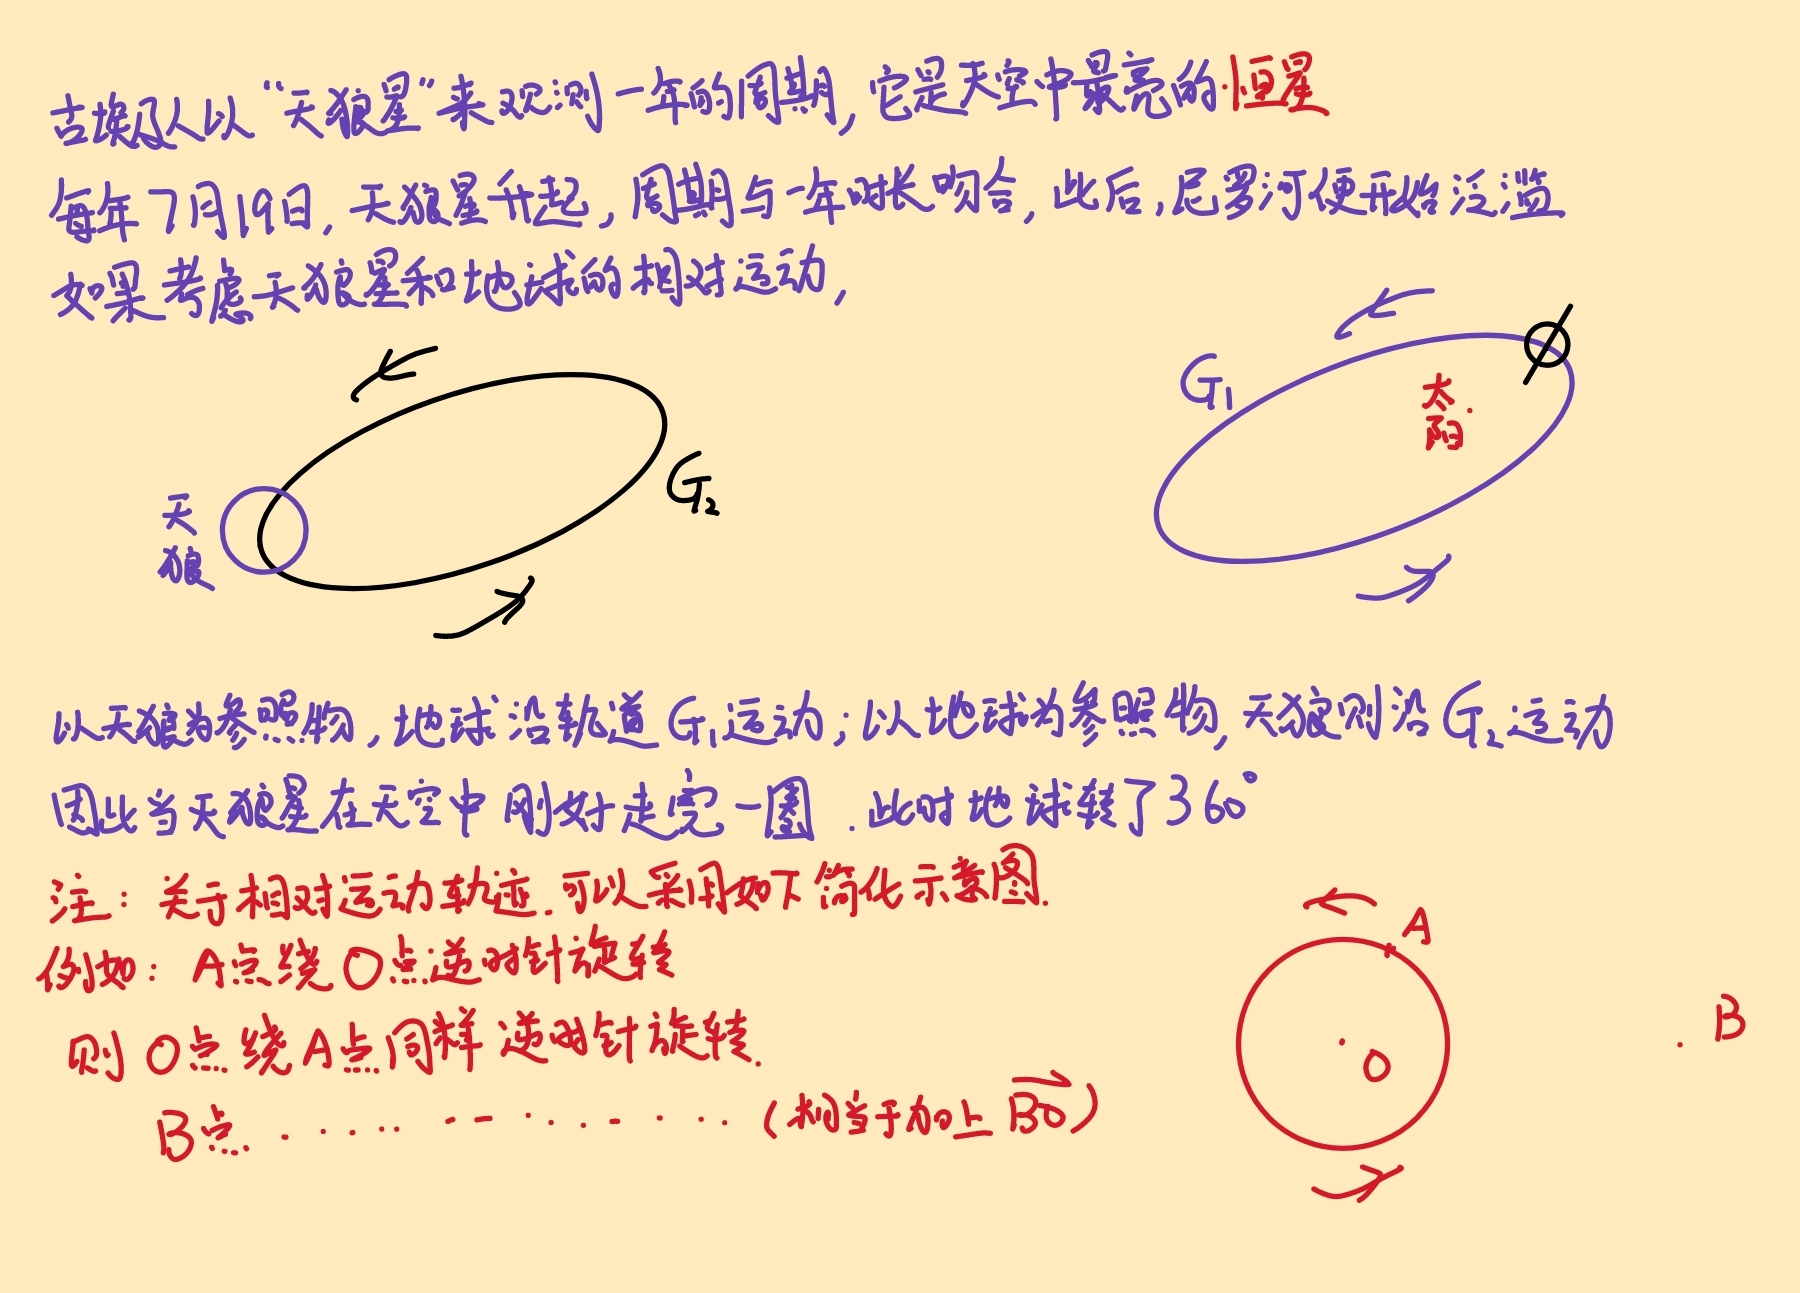 古埃及人以“天狼星”来观测一年的周期，它是天空中最亮的恒星
每年7月19日，天狼星升起，周期与一年时长吻合，此后，尼罗河便开始泛滥
如果考虑天狼星和地球的相对运动，
G1
太阳
G2
天狼
以天狼为参照物，地球沿轨道G1运动；以地球为参照物，天狼则沿G2运动
因此当天狼星在天空中刚好走完一圈．此时地球转了360°
注：关于相对运动轨迹．可以采用如下简化示意图．
例如：A点绕O点逆时针旋转
则O点绕A点同样逆时针旋转．
B点............（相当于加上BO）
A
O
B